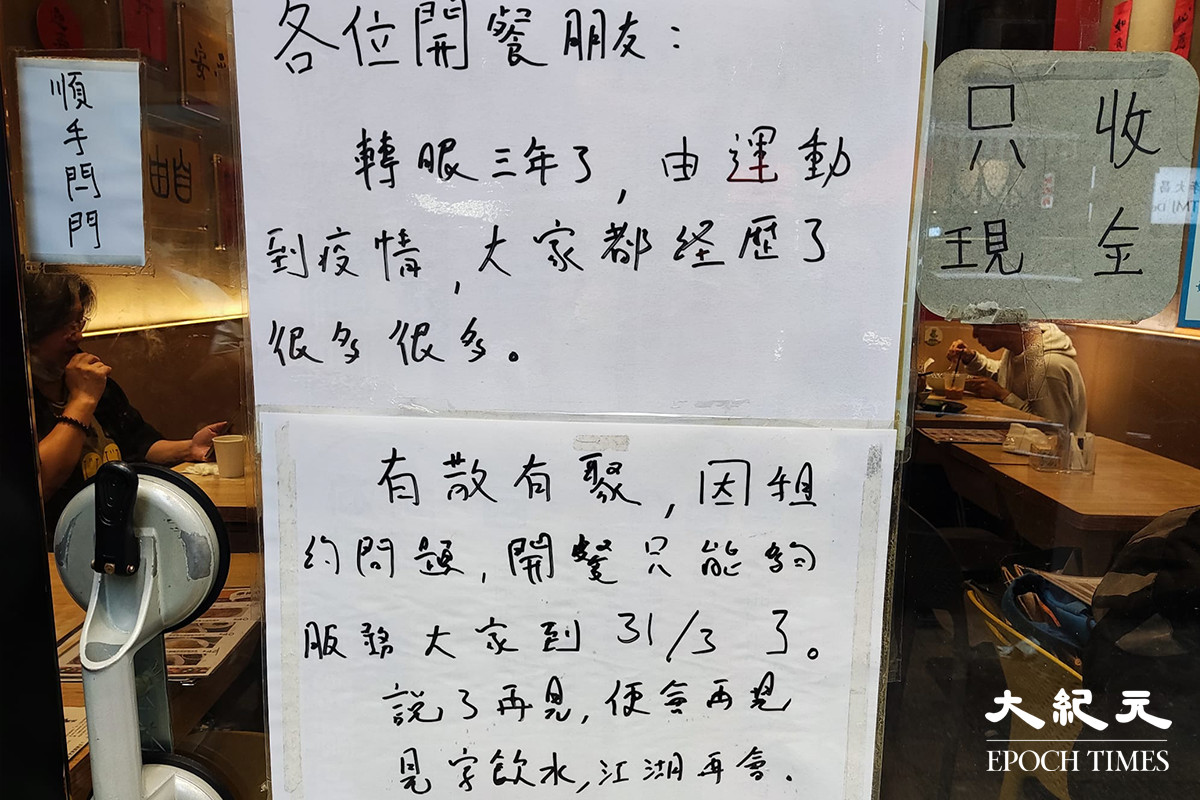 各位開餐朋友：
轉眼三年了，由運動
到疫情，大家都経歷了
很多很多。
有散有聚，因租
約問題，開餐只能夠
服務大家到 31/3 了。
說了再見，便會再見
見字飲水，江湖再會.
順手閂門
自由
只收
現金
大紀元
EPOCH TIMES